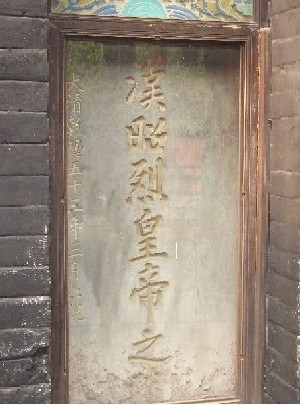 漢昭烈皇帝之
大清乾隆五十三年三月